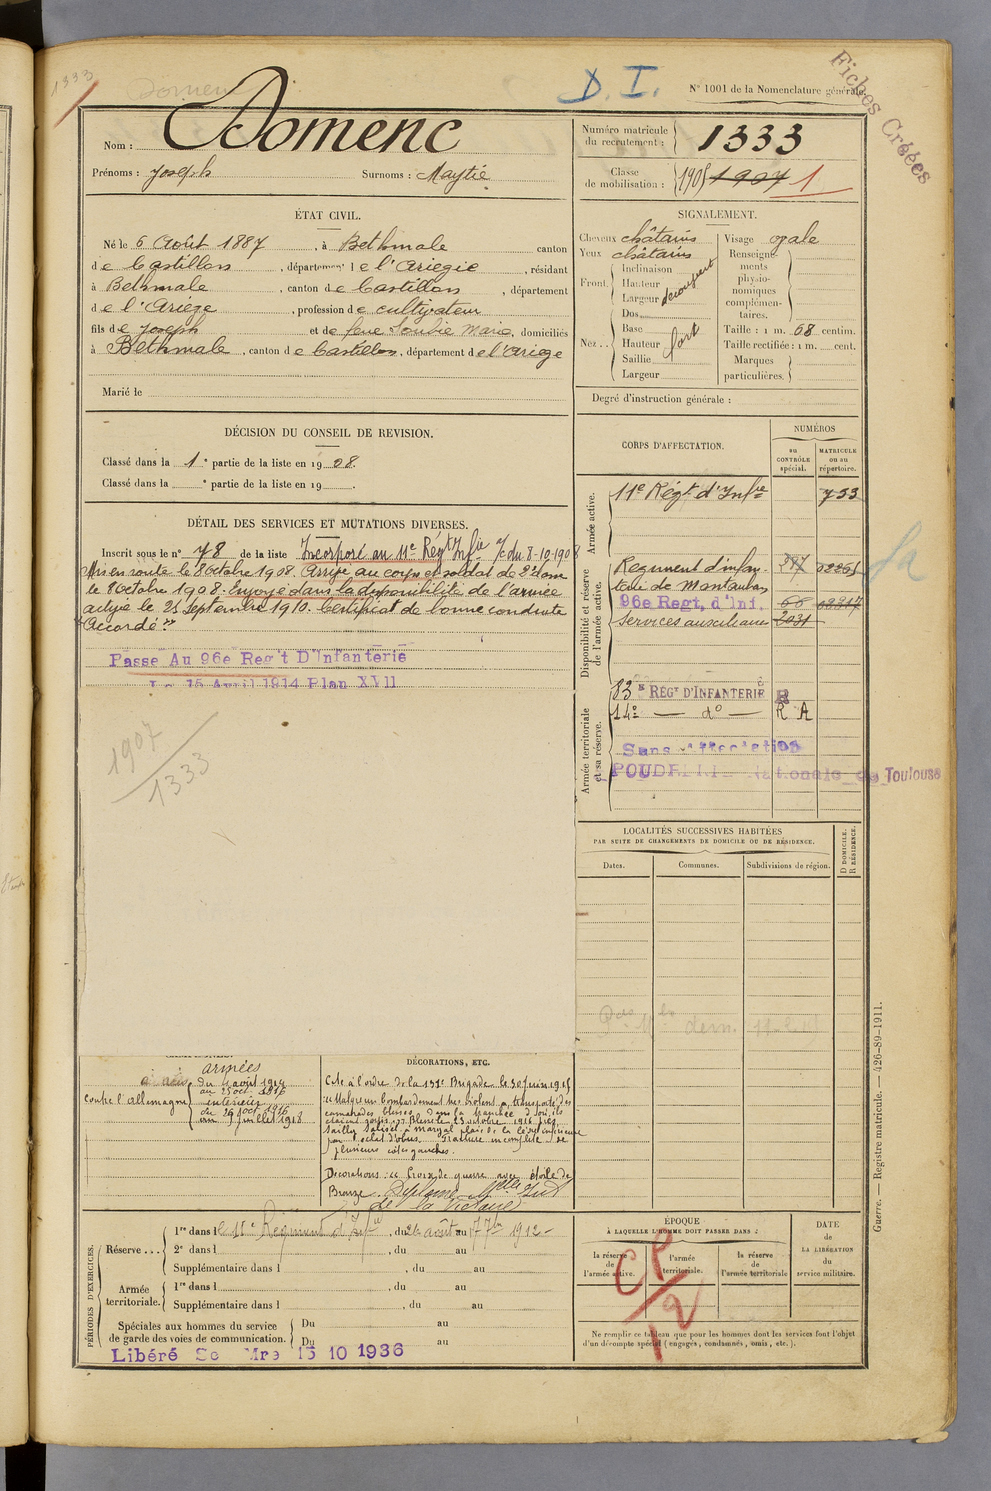 1333
Domenc
D. I.
N° 1001 de la Nomenclature générale.
Fiches Créées
Nom : Domenc
Prénoms : Joseph Surnoms : Maytié
Numéro matricule du recrutement : 1333
Classe de mobilisation : 1905 1907 1
ÉTAT CIVIL.
Né le 6 Août 1887, à Bethmale canton
de Castillon, département de l'Ariegie, résidant
à Bethmale, canton de Castillon, département
de l'Ariège, profession de cultivateur
fils de Joseph et de feue Soubie Marie, domiciliés
à Bethmale, canton de Castillon, département de l'Ariege
Marié le
SIGNALEMENT.
Cheveux châtains
Yeux châtains
Front. Inclinaison
Hauteur
Largeur découvert
Nez.. Dos
Base
Hauteur fort
Saillie
Largeur
Visage ovale
Renseignements physionomiques complémentaires.
Taille : 1 m. 68 centim.
Taille rectifiée : 1 m. cent.
Marques particulières.
Degré d'instruction générale :
DÉCISION DU CONSEIL DE REVISION.
Classé dans la 1e partie de la liste en 1908.
Classé dans la e partie de la liste en 19 .
DÉTAIL DES SERVICES ET MUTATIONS DIVERSES.
Inscrit sous le n° 78 de la liste Incorporé au 11e Régt Infie du 8-10-1908
Mis en route le 8 octobre 1908. Arrivé au corps et soldat de 2e classe
le 8 octobre 1908. Envoyé dans la disponibilité de l'armée
active le 25 septembre 1910. Certificat de bonne conduite
"Accordé"
Passe Au 96e Reg't D'Infanterie
Le 15 Avril 1914 Plan XVII
1907
1333
CORPS D'AFFECTATION.
NUMÉROS
au CONTRÔLE spécial.
MATRICULE ou au répertoire.
Armée active.
11e Régt d'Infie 753
Disponibilité et réserve de l'armée active.
Regiment d'infan-
terie de Montauban
96e Regt. d'Inf. 66
Services auxiliaires 2031
Armée territoriale et sa réserve.
83e RÉGt D'INFANTERIE R
14e — do — R A
Sans affectation
POUDRERIE Nationale de Toulouse
LOCALITÉS SUCCESSIVES HABITÉES
PAR SUITE DE CHANGEMENTS DE DOMICILE OU DE RÉSIDENCE.
Dates. Communes. Subdivisions de région. D DOMICILE. R RÉSIDENCE.
armées
contre l'Allemagne du 4 août 1914
au 25 oct. 1916
intérieur
du 26 oct 1916
au 9 juillet 1918
DÉCORATIONS, ETC.
Cité à l'ordre de la 131e Brigade le 30 juin 1915
"Malgré un bombardement très violent a transporté des
camarades blessés dans la tranchée d'où ils
étaient partis". Blessé le 23 octobre 1916 près
Sailly Saillisel
par éclat d'obus. Fracture incomplète de
plusieurs côtes gauches.
Décorations : Croix de guerre avec étoile de
Bronze. Diplôme Mlle
de la Victoire
PÉRIODES D'EXERCICES.
Réserve... 1re dans le 11e Régiment d'Infie, du 26 août au 17 7bre 1912
2e dans l , du au
Supplémentaire dans l , du au
Armée territoriale. 1re dans l , du au
Supplémentaire dans l , du au
Spéciales aux hommes du service de garde des voies de communication. Du au
Du au
Libéré Mre 15 10 1936
ÉPOQUE
À LAQUELLE L'HOMME DOIT PASSER DANS :
la réserve de l'armée active.
l'armée territoriale.
la réserve de l'armée territoriale
DATE de LA LIBÉRATION du service militaire.
CP/2
Ne remplir ce tableau que pour les hommes dont les services font l'objet
d'un décompte spécial (engagés, condamnés, omis, etc.).
Guerre. — Registre matricule. — 426-89-1911.